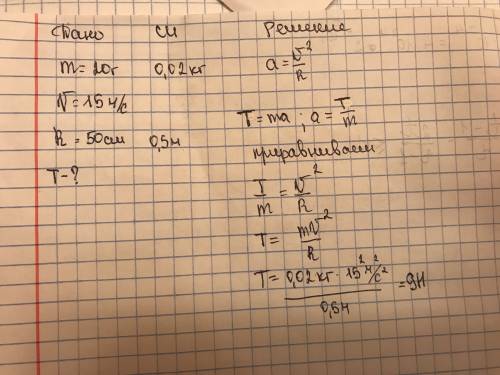 Дано СИ Решение
m = 20г 0,02 кг a = v²/R
v = 15 м/с
R = 50см 0,5м T = ma ; a = T/m
T - ? приравниваем
T/m = v²/R
T = mv²/R
T = 0,02 кг · 15² м²/с² / 0,5м = 9Н